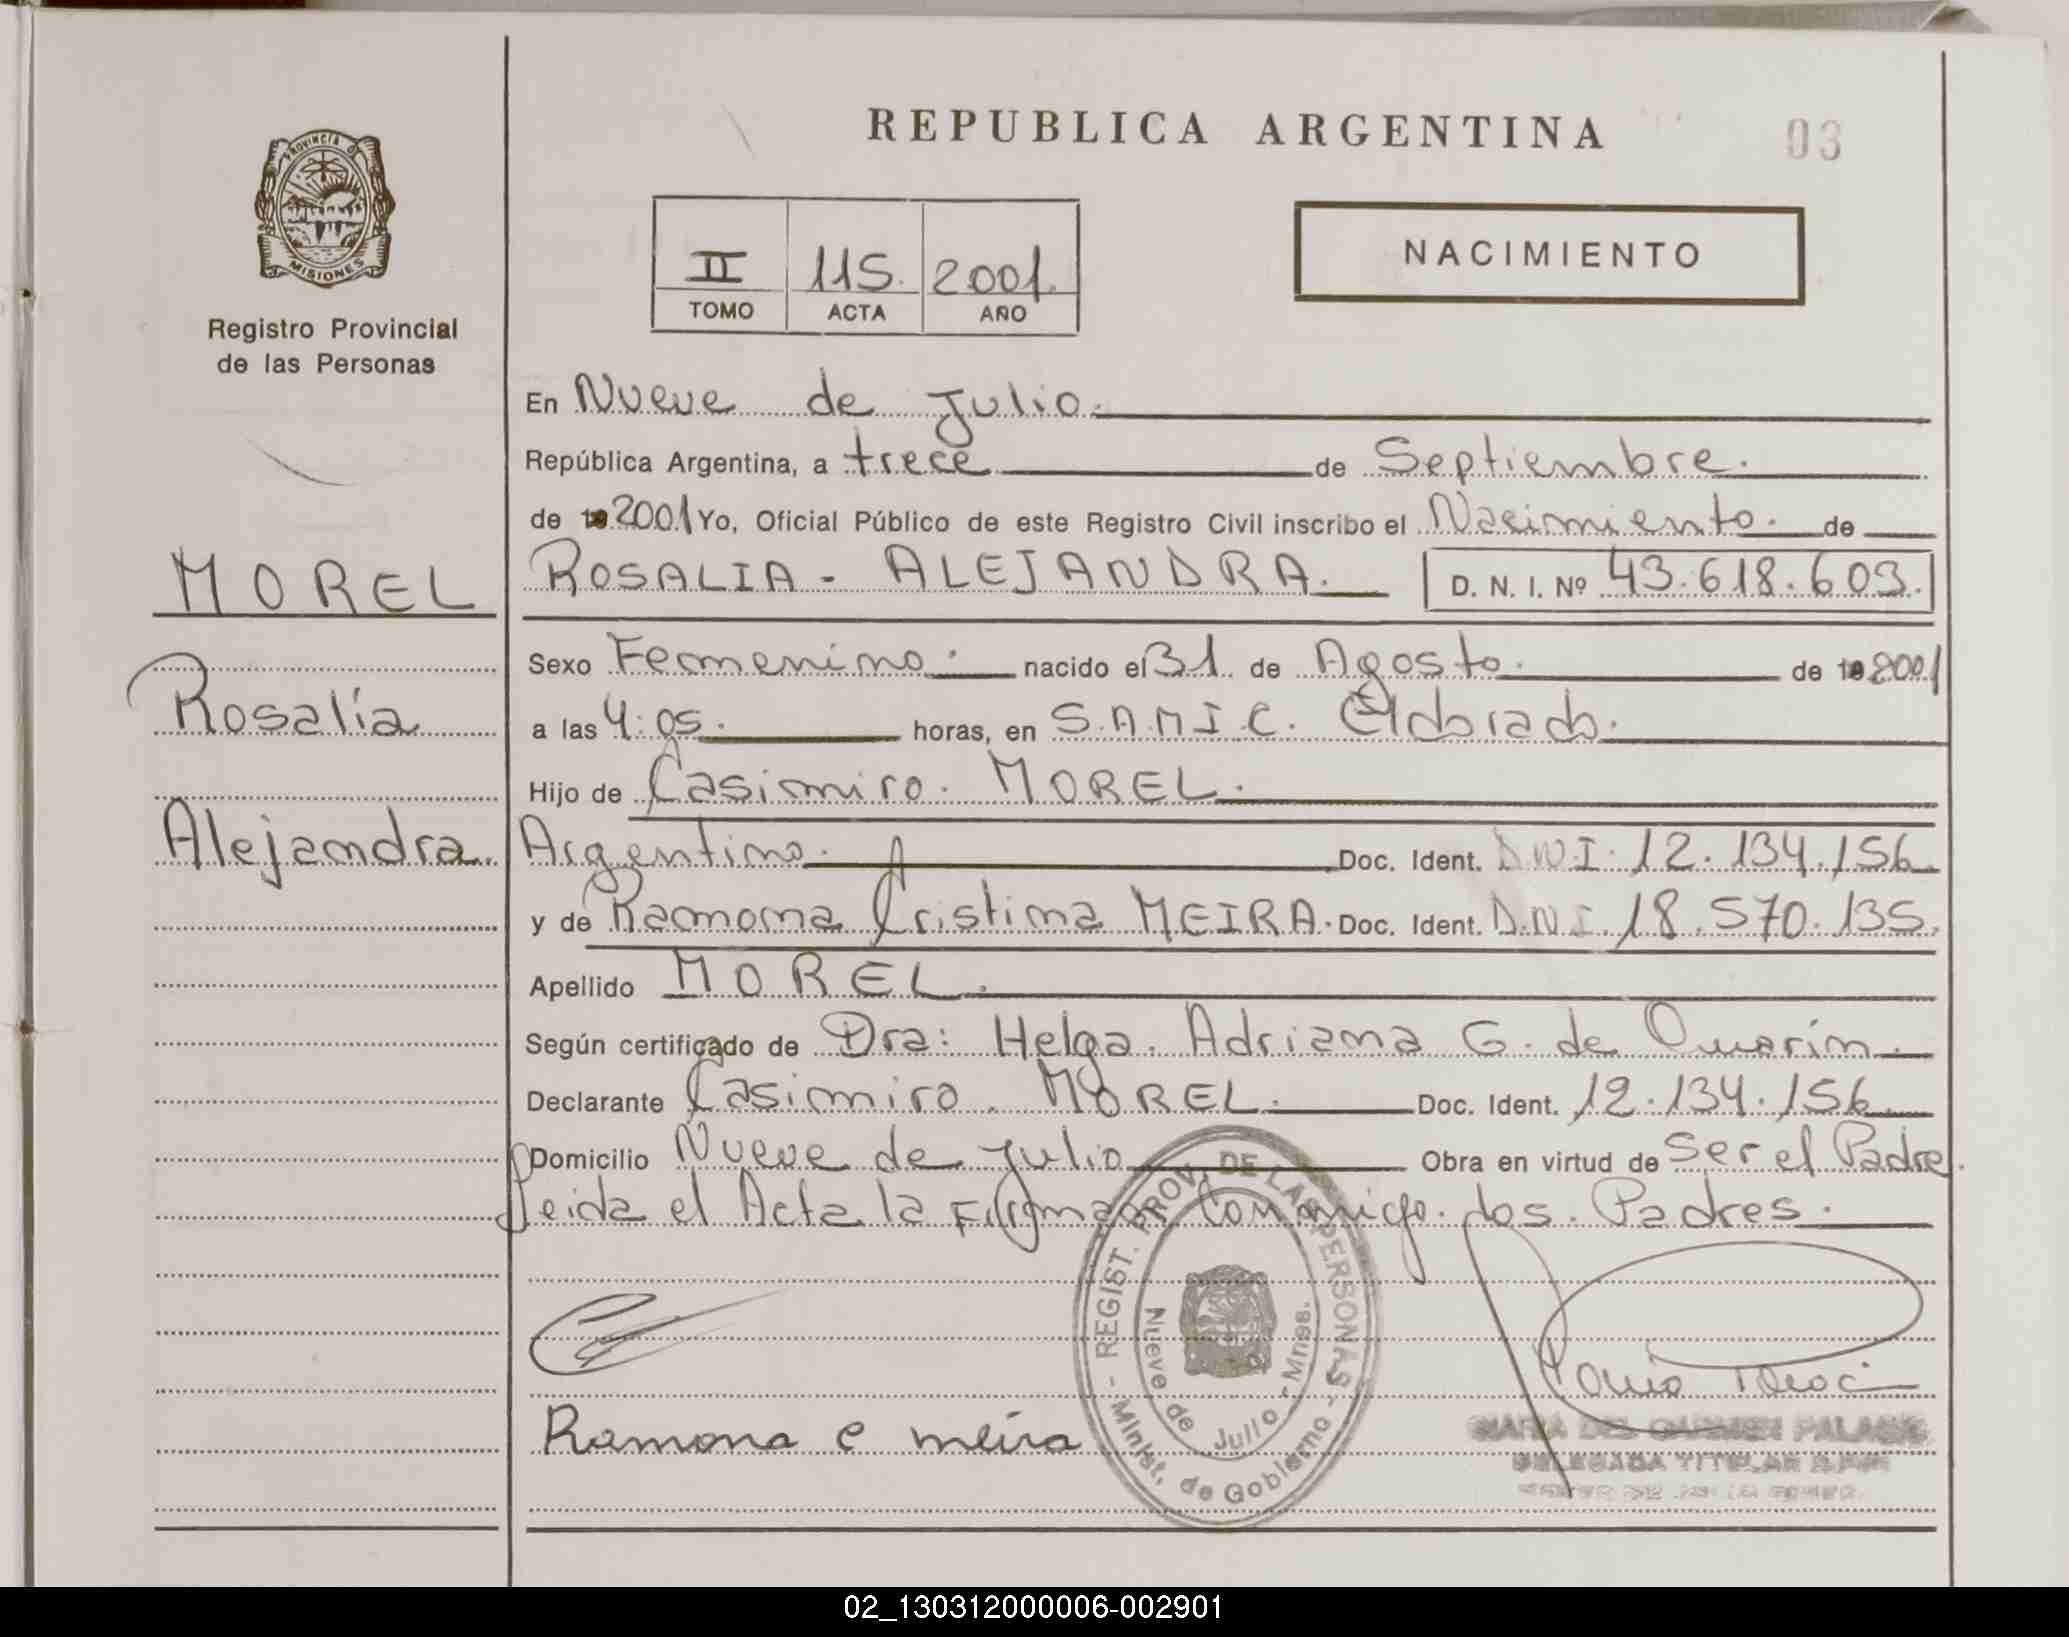 REPUBLICA ARGENTINA
03
PROVINCIA DE
MISIONES
Registro Provincial
de las Personas
II 115. 2001.
TOMO ACTA AÑO
NACIMIENTO
En Nueve de Julio.
República Argentina, a trece de Septiembre.
de 19 2001 Yo, Oficial Público de este Registro Civil inscribo el Nacimiento. de
MOREL
ROSALIA - ALEJANDRA. D. N. I. Nº 43.618.603.
Sexo Femenino. nacido el 31 de Agosto. de 19 2001
Rosalía
a las 4:05. horas, en S.A.M.I.C. Eldorado.
Hijo de Casimiro. MOREL.
Alejandra
Argentino. Doc. Ident. D.N.I. 12.134.156
y de Ramona Cristina MEIRA. Doc. Ident. D.N.I. 18.570.135.
Apellido MOREL.
Según certificado de Dra: Helga. Adriana G. de
Declarante Casimiro. MOREL. Doc. Ident. 12.134.156
Domicilio Nueve de Julio Obra en virtud de ser el Padre.
Leida el Acta la Firman Conmigo. los. Padres.
REGIST. PROV. DE LAS PERSONAS - Minist. de Gobierno -
Nueve de Julio - Mnes.
Ramona C meira
MARIA DEL CARMEN
DELEGADA TITULAR
02_130312000006-002901